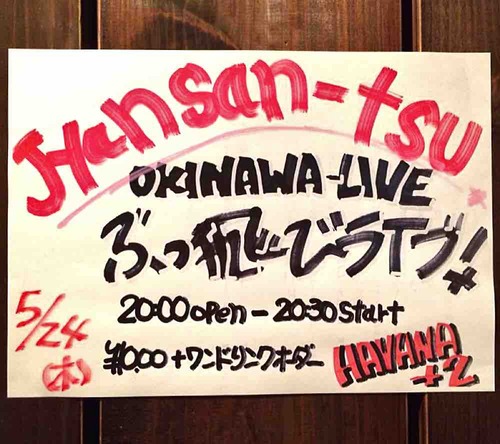 Hansan-tsu
OKINAWA-LIVE
ぶっ飛びライブ!
20:00open-20:30start
5/24
(木)
¥0.00+ワンドリンクオーダー
HAVANA
+2